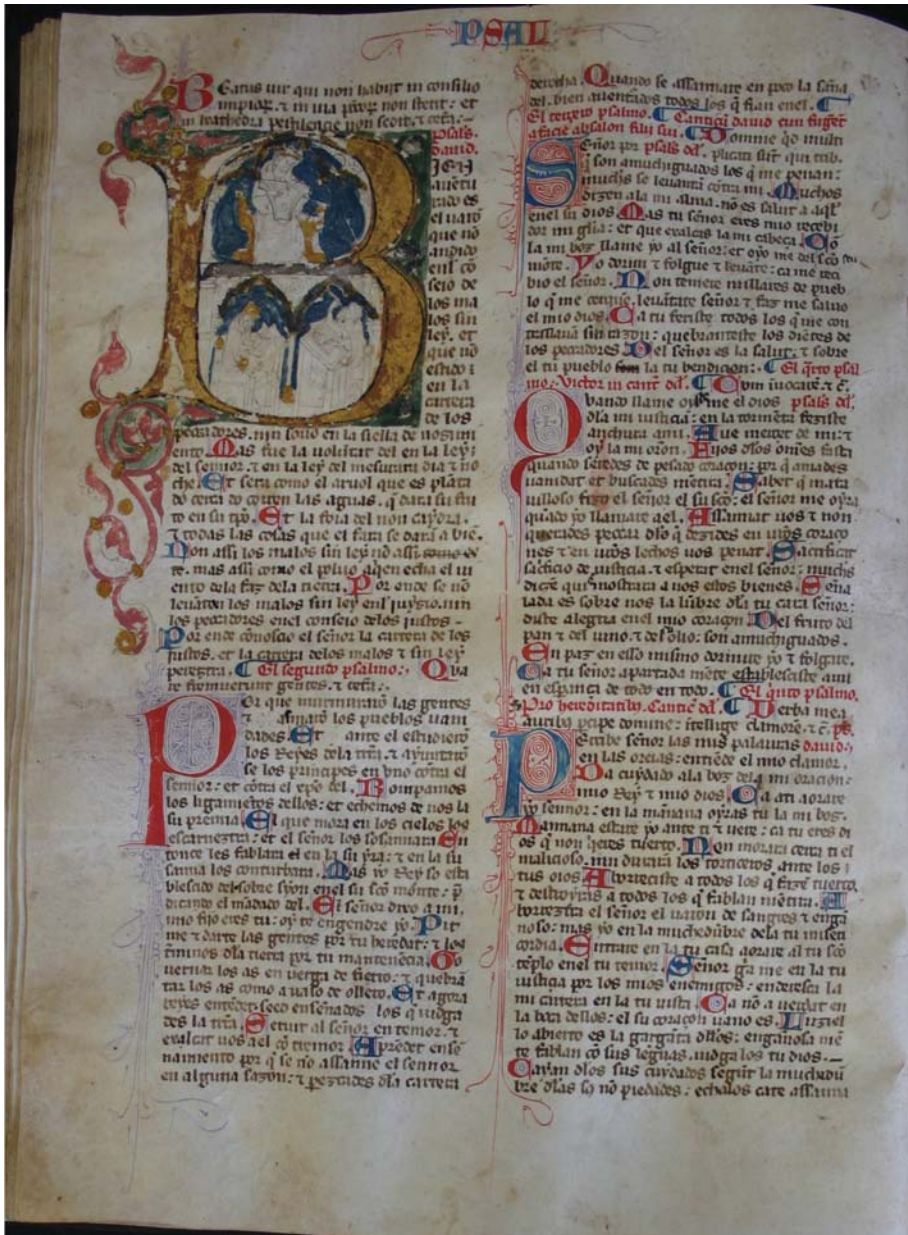 PSAL
BEatus uir qui non habijt in consilio
impior. τ in uia pctor non stetit: et
in kathedra pestilencie non sedit. τ cetã.
psalm.
Dauid.
BIEN
auētu
rado es
el uarō
que nō
andido
enl cō
seio de
los ma
los sin
ley. et
que nō
estido i
en la
carrera
de los
peccadores. nin souo en la siella de nozimi
ento. Mas fue la volūtat del en la ley:
del sennor. τ en la ley del mesurara dia τ no
che. Et sera como el aruol que es plāta
do cerca do corren las aguas. q̄ dara su fru
to en su tp̄o. Et la foia del non cayra.
τ todas las cosas que el fara se dara a biē.
Non assi los malos sin ley nō assi como es
te. mas assi como el poluo aqen echa el ui
ento dela faz dela tierra. Por ende se nō
leuātan los malos sin ley enl juyzio. nin
los peccadores enel conseio delos justos.
Por ende cōnoscio el señor la carrera de los
justos. et la carrera delos malos τ sin ley
perezra. El segundo psalmo: Qua
re fremuerunt gentes. τ cetã.
Por que murmurarō las gentes
τ asmarō los pueblos uani
dades. Et ante el estudierō
los Reyes dela tr̄ra. τ ayuntarō
se los principes en vno cōtra el
sennor: et cōtra el xp̄o del. Rompamos
los ligamiētos dellos: et echemos de nos la
su premia. El que mora en los cielos los
escarnezra: et el señor los sosannara. En
tonce les fablara el en la su yra: τ en la su
sanna los conturbara. Mas yo Rey so esta
blescido del sobre syon enel su sc̄o mōnte: p̄
dicando el mādado del. El señor dixo a mi.
mio fijo eres tu: oy te engendre yo. Pit
me τ darte las gentes por tu heredat: τ los
t̄minos dla tierra por tu mantenēcia. Go
uernar los as en uerga de fierro: τ quebrā
tar los as como a uaso de ollero. Et agora
reyes entēdet: seed enseñados los q̄ iudga
des la tr̄ra. Seruit al señor en temor. τ
exalçat uos a el cō tremor. Aprēdet ense
namiento por q̄ se nō assanne el sennor
en alguna sazon: τ perzcades dla carrera
derecha. Quando se assannare en poco la saña
del. bien auenturados todos los q̄ fian enel.
El tercero psalmo. Canticū dauid cum fugeret
a facie absalon filij sui. Domine qd multi
psalm del. plicati sūt qui trib.
Señor por
q̄ son amuchiguados los q̄ me penan:
muchos se leuantā cōtra mi. Muchos
dizen ala mi alma. nō es salut a aql
enel su dios. Mas tu señor eres mio recebi
dor mi gl̄ia: et que exalças la mi cabeça. Cō
la mi boz llame yo al señor: et oyo me del sc̄o su
mōte. Yo dormi τ folgue τ leuāte: ca me reci
bio el señor. Non temere millares de pueb
lo q̄ me cerque. leuātate señor τ faz me saluo
el mio dios. Ca tu feriste todos los q̄ me con
trallauā sin razon: quebranteste los diētes de
los peccadores. Del señor es la salut. τ sobre
el tu pueblo la tu bendicion: El q̄rto psal
mo. Victor in cant̄ dd. Cum inuocarē. τ c̄.
Quando llame oyo me el dios psalm dd.
dla mi iusticia: en la tormēta feziste
anchura a mi. Aue merçet de mi: τ
oy la mi orōn. Fijos dlos omēs fasta
quando seredes de pesado coraçon: por q̄ amades
uanidat et buscades mētira. Sabet q̄ mara
uilloso fizo el señor el su sc̄o: el señor me oyra
quādo yo llamare a el. Assannat uos τ non
querades peccar: dlo q̄ dezides en ur̄os coraço
nes τ en ur̄os lechos uos penat. Sacrificat
sacficio de iusticia. τ esperat enel señor: muchos
dizē qui nostrara a nos estos bienes. Seña
lada es sobre nos la lūbre dla tu cara señor:
diste alegria enel mio coraçon. Del fruto del
pan τ del uino. τ del olio: son amuchiguados.
En paz en esso mismo dormire yo τ folgare.
Ca tu señor apartada mēte establesciste a mi
en espança de todo en todo. El q̄nto psalmo.
Pro hereditatib. Canticū dd. Verba mea
auribȝ pcipe domine: intellige clamorē. τ c̄. ps.
Recibe señor las mis palauras dauid:
en las oreias: entiēde el mio clamor.
Para cuydado ala boz dela mi oracion:
mio Rey τ mio dios. Ca a ti aorare
yo sennor: en la mañana oyras tu la mi boz.
Mannana estare yo ante ti τ uere: ca tu eres di
os q̄ non q̄eres tuerto. Non morara cerca ti el
malicioso. nin durarā los torticeros ante los
tus oios. Aborreciste a todos los q̄ fazē tuerto.
τ destroyras a todos los q̄ fablan mētira. A
borrezra el señor el uaron de sangres τ enga
noso: mas yo en la muchedūbre dela tu miseri
cordia. Entrare en la tu casa aorare al tu sc̄o
tēplo enel tu temor. Señor ḡa me en la tu
iusticia por los mios enemigos: enderesça la
mi carrera en la tu uista. Ca nō a uerdat en
la boca dellos: el su coraçon uano es. Luziel
lo abierto es la gargāta dllos: engañosa mē
te fablan cō sus lēguas. iudga los tu dios.
Cayan dlos sus cuydados segūt la muchedū
bre dlas sus nō piedades: echalos ca te assanna